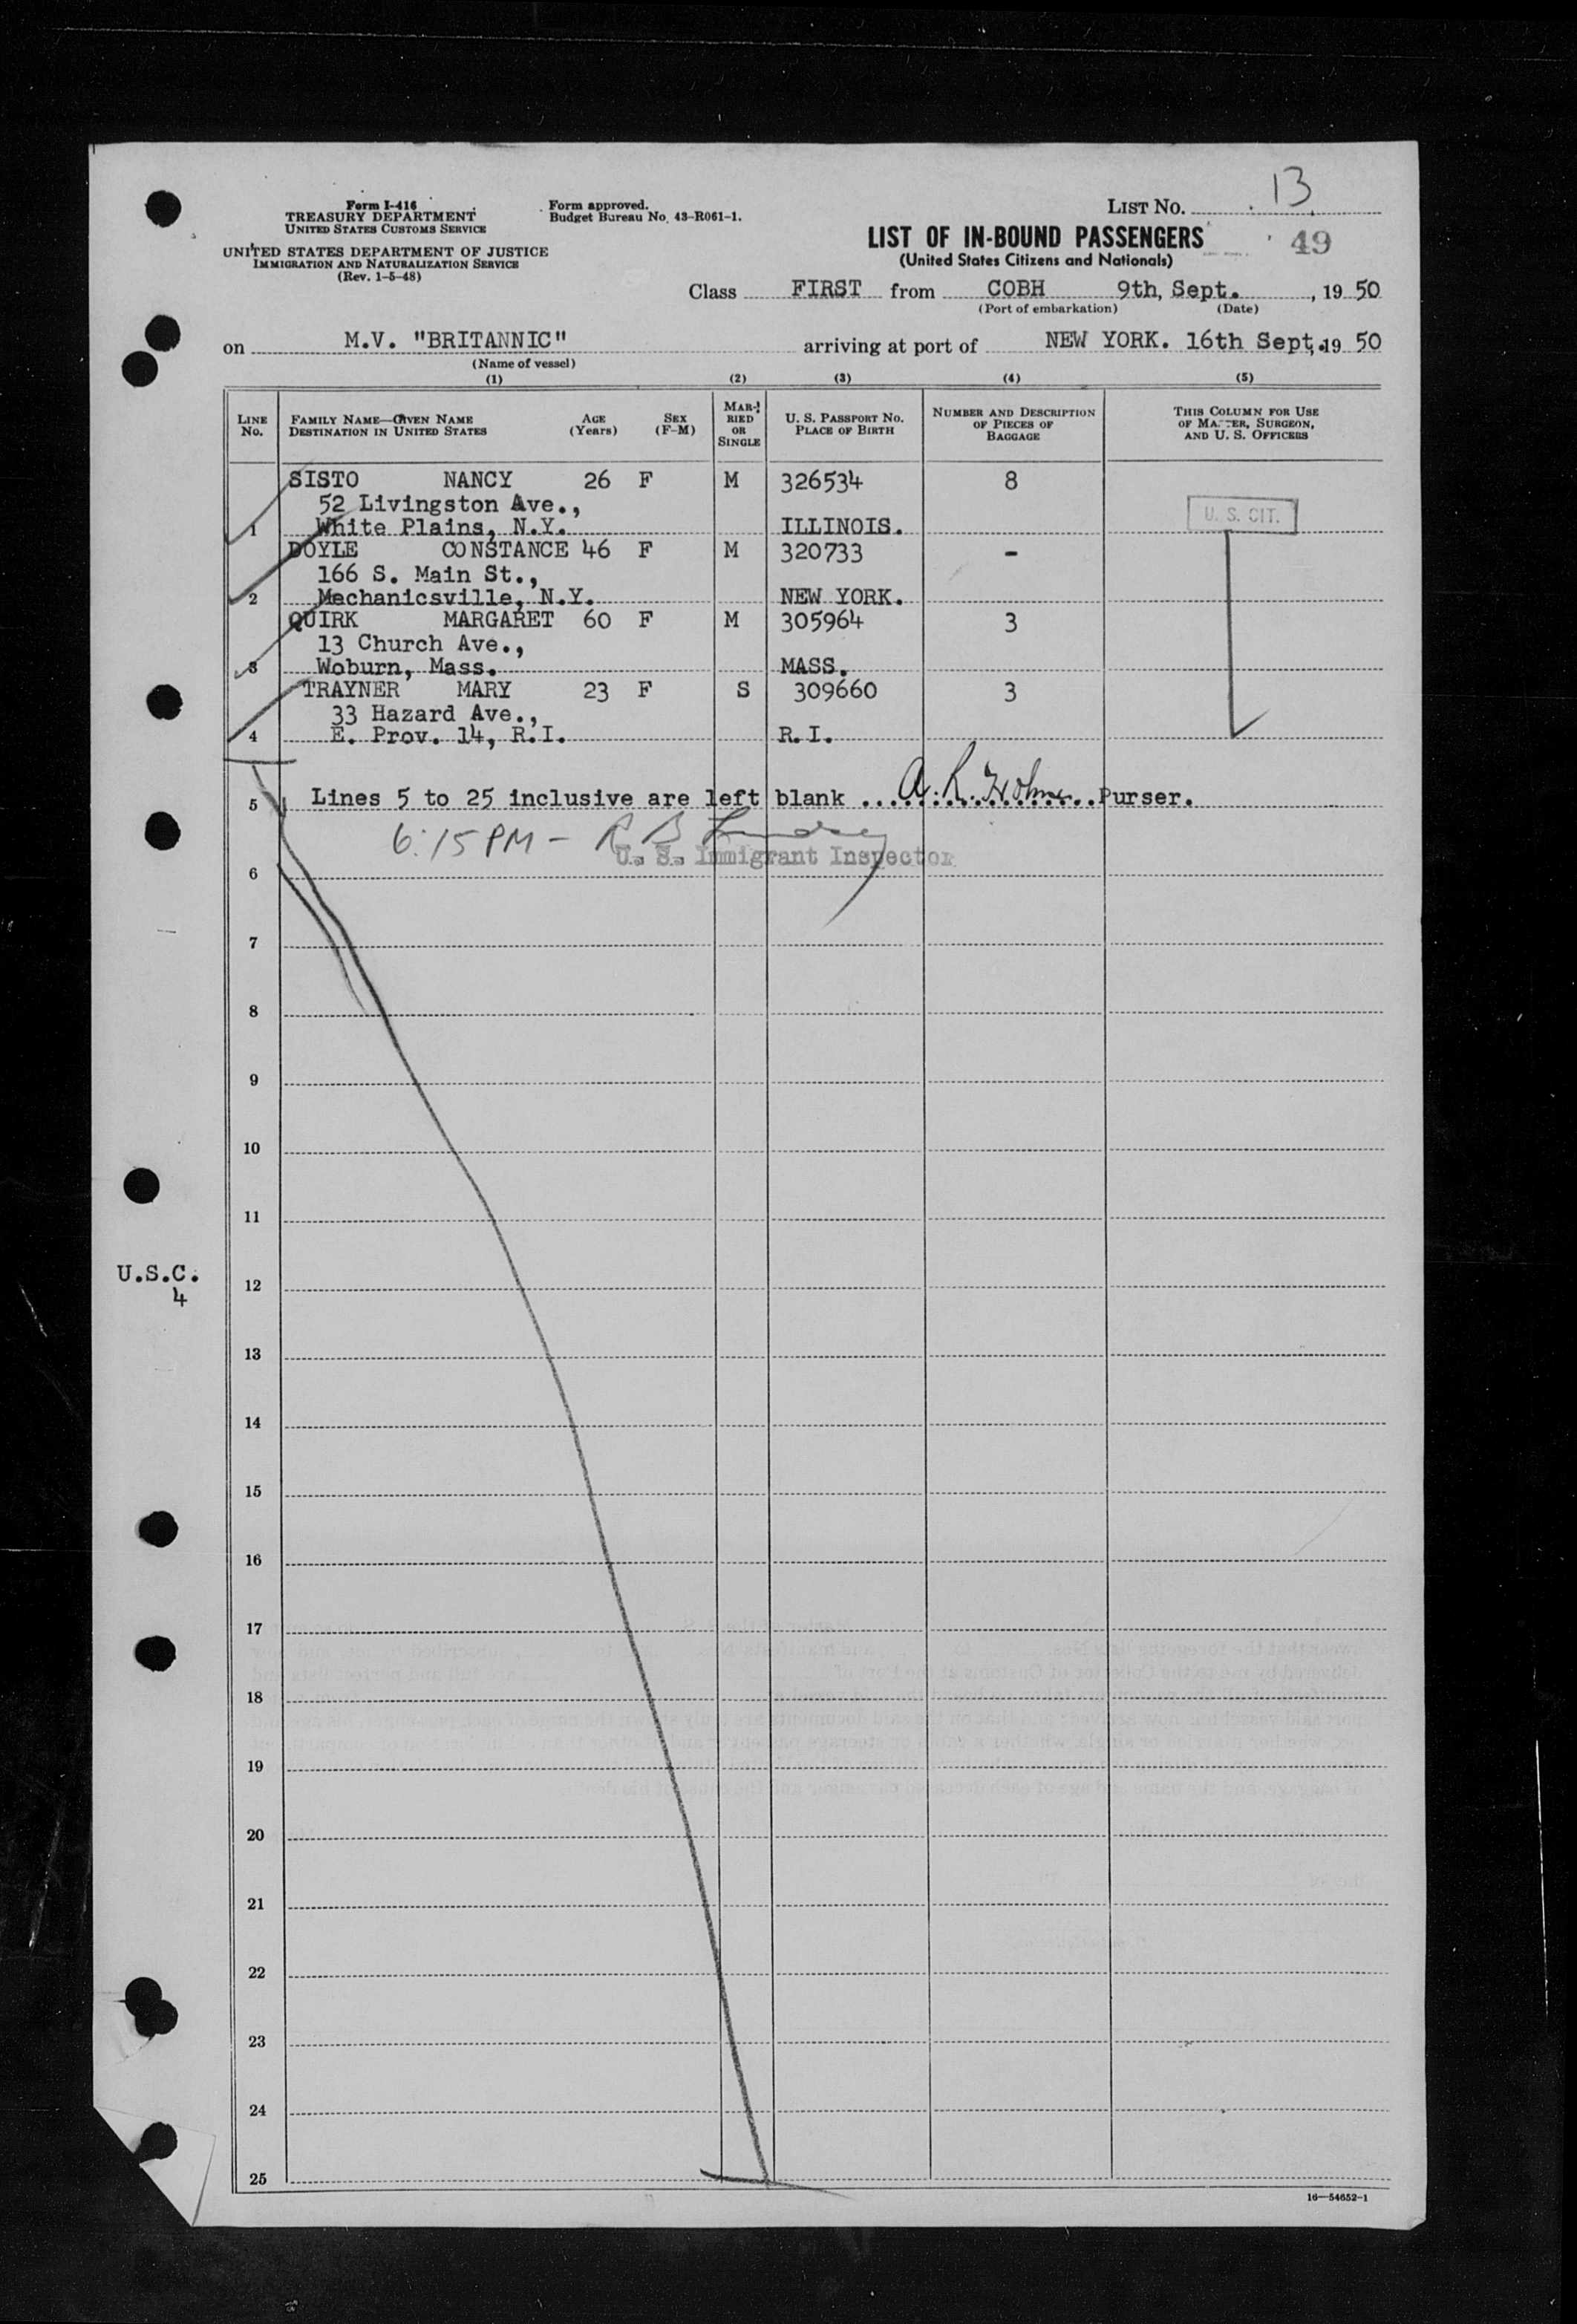 Form I-416
TREASURY DEPARTMENT
UNITED STATES CUSTOMS SERVICE
UNITED STATES DEPARTMENT OF JUSTICE
IMMIGRATION AND NATURALIZATION SERVICE
(Rev. 1-5-48)
Form approved.
Budget Bureau No. 43-R061-1.
LIST No. 13
LIST OF IN-BOUND PASSENGERS 49
(United States Citizens and Nationals)
Class FIRST from COBH 9th, Sept. , 19 50
(Port of embarkation) (Date)
on M.V. "BRITANNIC" arriving at port of NEW YORK. 16th Sept, 19 50
(Name of vessel)
(1) (2) (3) (4) (5)
LINE No. FAMILY NAME—GIVEN NAME DESTINATION IN UNITED STATES AGE (Years) SEX (F-M) MARRIED OR SINGLE U. S. PASSPORT NO. PLACE OF BIRTH NUMBER AND DESCRIPTION OF PIECES OF BAGGAGE THIS COLUMN FOR USE OF MASTER, SURGEON, AND U. S. OFFICERS
SISTO NANCY 26 F M 326534 8
52 Livingston Ave., U. S. CIT.
1 White Plains, N.Y. ILLINOIS.
DOYLE CONSTANCE 46 F M 320733 -
166 S. Main St.,
2 Mechanicsville, N.Y. NEW YORK.
QUIRK MARGARET 60 F M 305964 3
13 Church Ave.,
3 Woburn, Mass. MASS.
TRAYNER MARY 23 F S 309660 3
33 Hazard Ave.,
4 E. Prov. 14, R.I. R.I.
5 Lines 5 to 25 inclusive are left blank ... A. R. ... Purser.
6:15 PM - R B
U. S. Immigrant Inspector
6
7
8
9
10
11
U.S.C.
4
12
13
14
15
16
17
18
19
20
21
22
23
24
25
16—54652-1